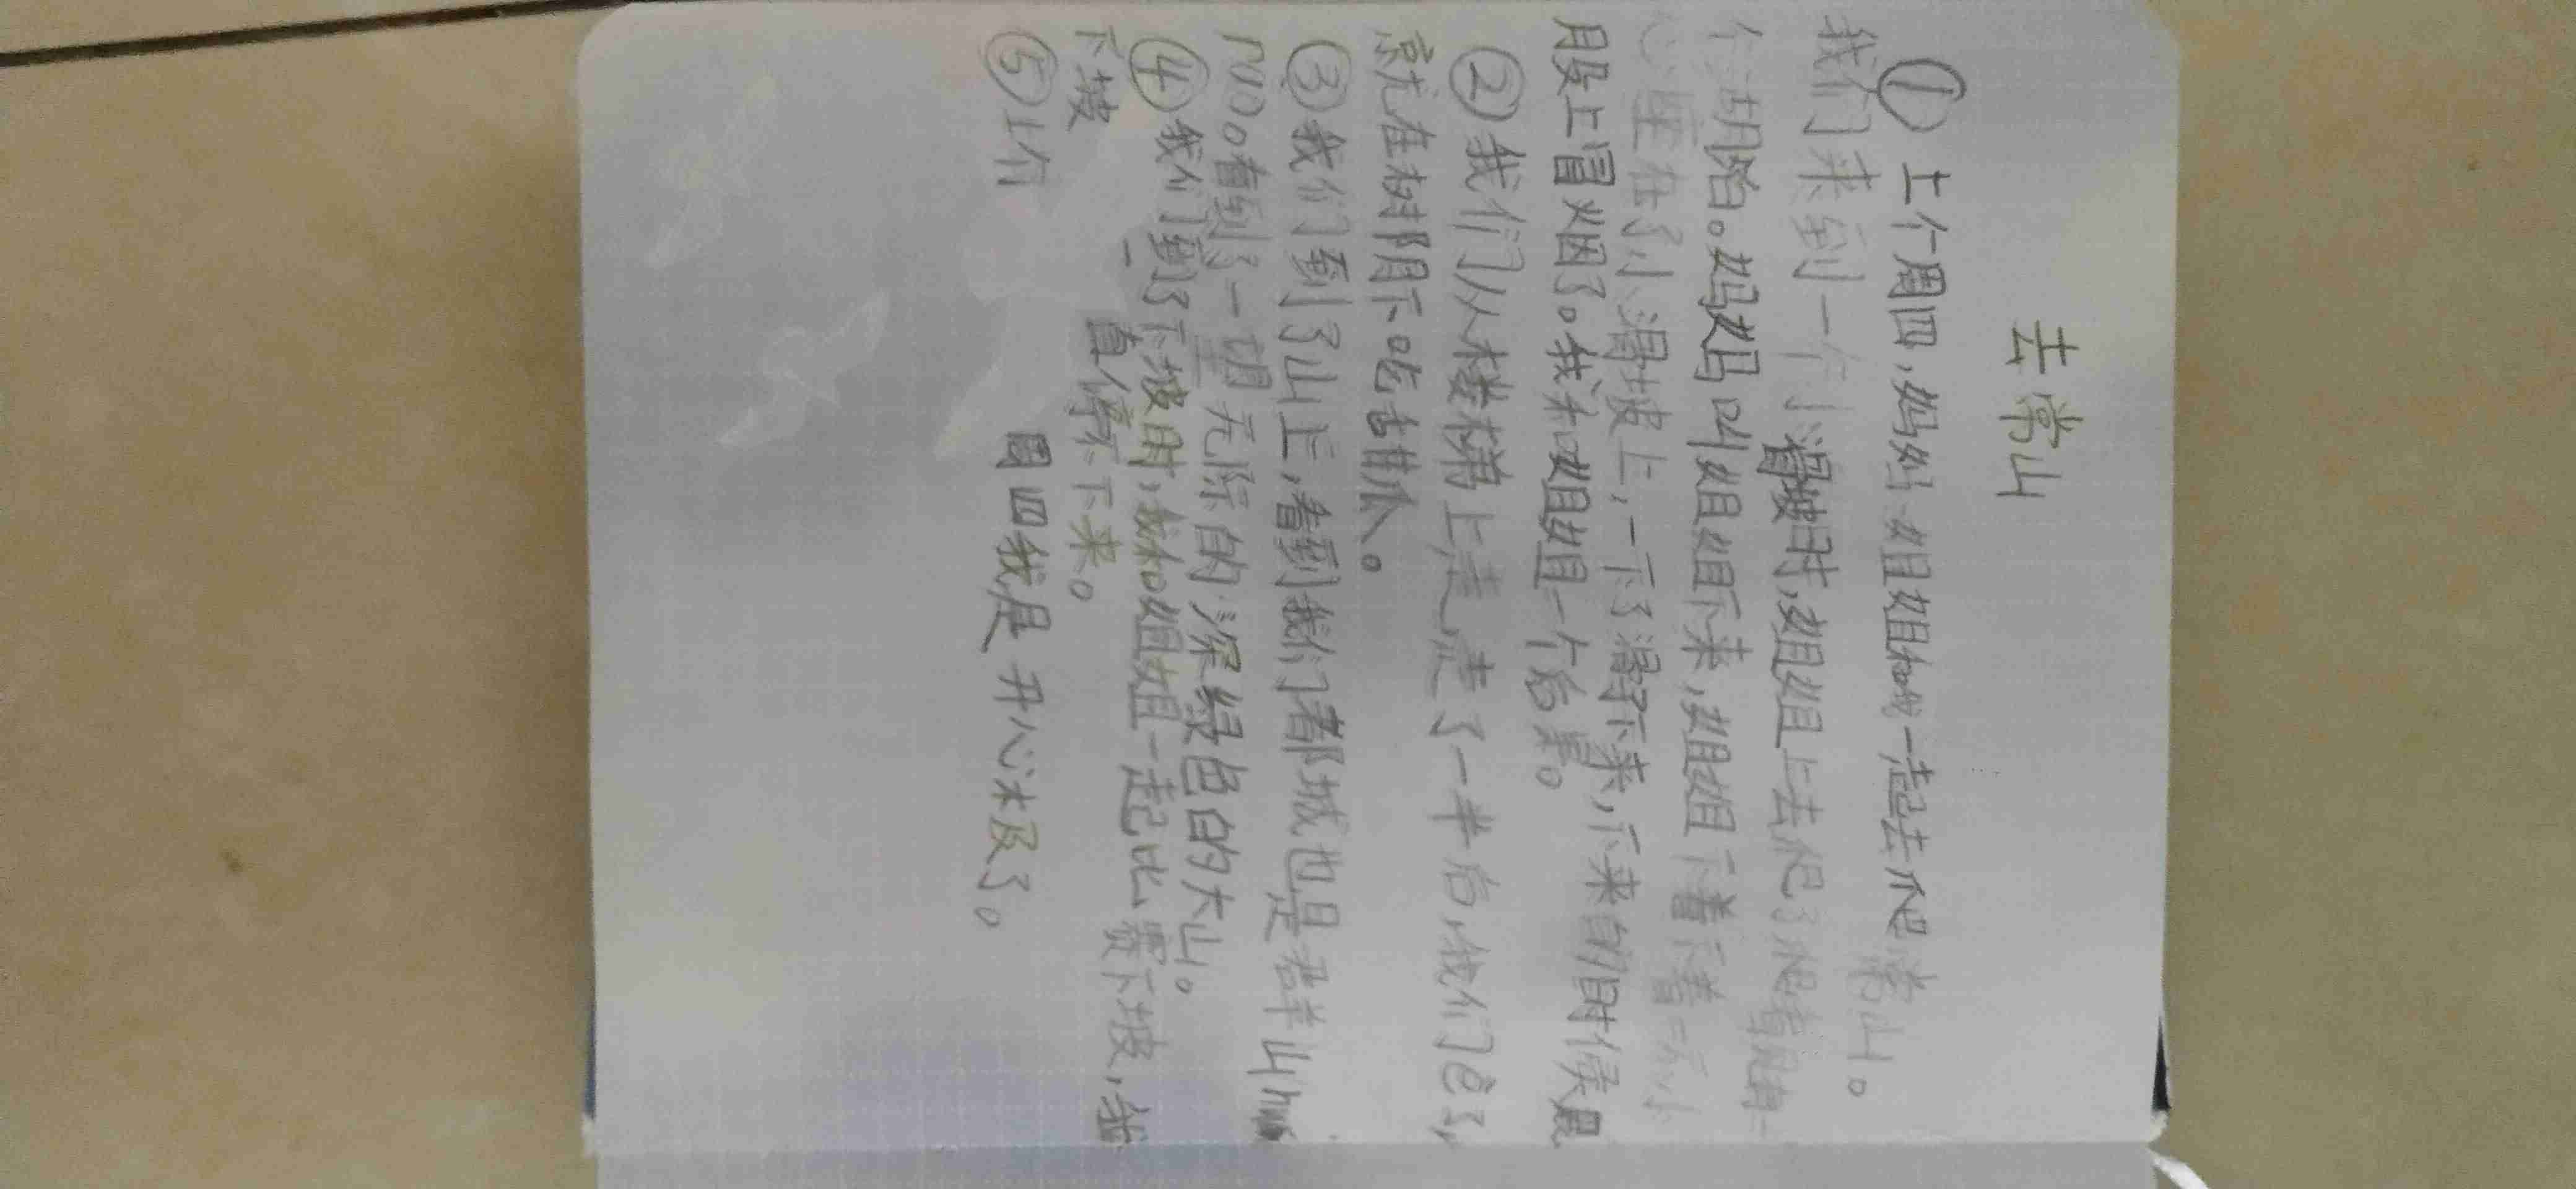 去常山
① 上个周四,妈妈姐姐和我一起去爬常山。
我们来到一个小滑坡时,姐姐上去爬了爬
个胡哈。妈妈叫姐姐下来,姐姐下着下着
心里在了小滑坡上,一下了滑下来,下来的时候屁
股上冒火因了。我和姐姐一个
② 我们从楼梯上走走走了一半后,我们
就在树阴下吃甘瓜。
③ 我们到了山上,看到我们者都城也是群山huan
rao。看到了一望无际的深绿色的大山。
④ 我们到了下坡时,我和姐姐一起比赛下坡,我
下坡一直停不下来。
⑤ 上个周四我是开心木及了。